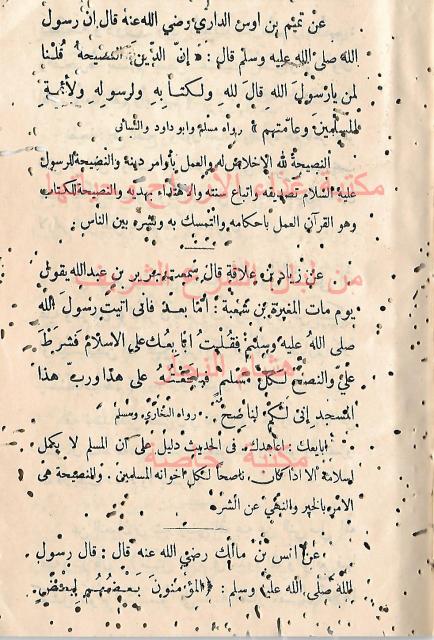 عن تميم بن اوس الداري رضي الله عنه قال ان رسول
الله صلى الله عليه وسلم قال : « إنّ الدّينَ النّصيحةُ قُلنا
لمن يارسُولَ الله قالَ للهِ ولكتابهِ ولرسولهِ ولأئمةِ
المسلمين وعامّتهم » رواه مسلم وابو داود والنسائى
النصيحة لله الاخلاص له والعمل بأوامر دينه والنصيحة للرسول
عليه السّلام تصديقه واتباع سنته والاهتداء بهديه والنصيحة للكتاب
وهو القرآن العمل باحكامه والتمسك به ونشره بين الناس .
عن زياد بن علاقة قال سمعت جرير بن عبدالله يقول
يوم مات المغيرة بن شعبة : امّا بعد فانى اتيت رسولَ الله
صلى اللهُ عليه وسلم فقلتُ ابايعُك على الاسلام فشرطَ
عليّ والنصح لكل مسلم فبايعتُهُ على هذا وربّ هذا
المسجد إنى لكم لناصح . رواه البخاري ومسلم
ابايعك اعاهدك . فى الحديث دليل على ان المسلم لا يكمل
اسلامه الا اذا كان ناصحاً لكل اخوانه المسلمين . والنصيحة هى
الامر بالخير والنهي عن الشر .
عن انس بن مالك رضي الله عنه قال : قال رسول
الله صلى الله عليه وسلم : « المؤمنونَ بعضُهُم لبعضٍ
مكتبة غذاء الأرواح
من لبنان
هشام النجار
مكتبة خاصة